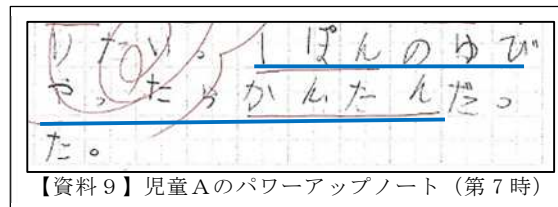 りたい。1ぽんのゆび
やったらかんたんだっ
た。
【資料９】児童Ａのパワーアップノート（第７時）